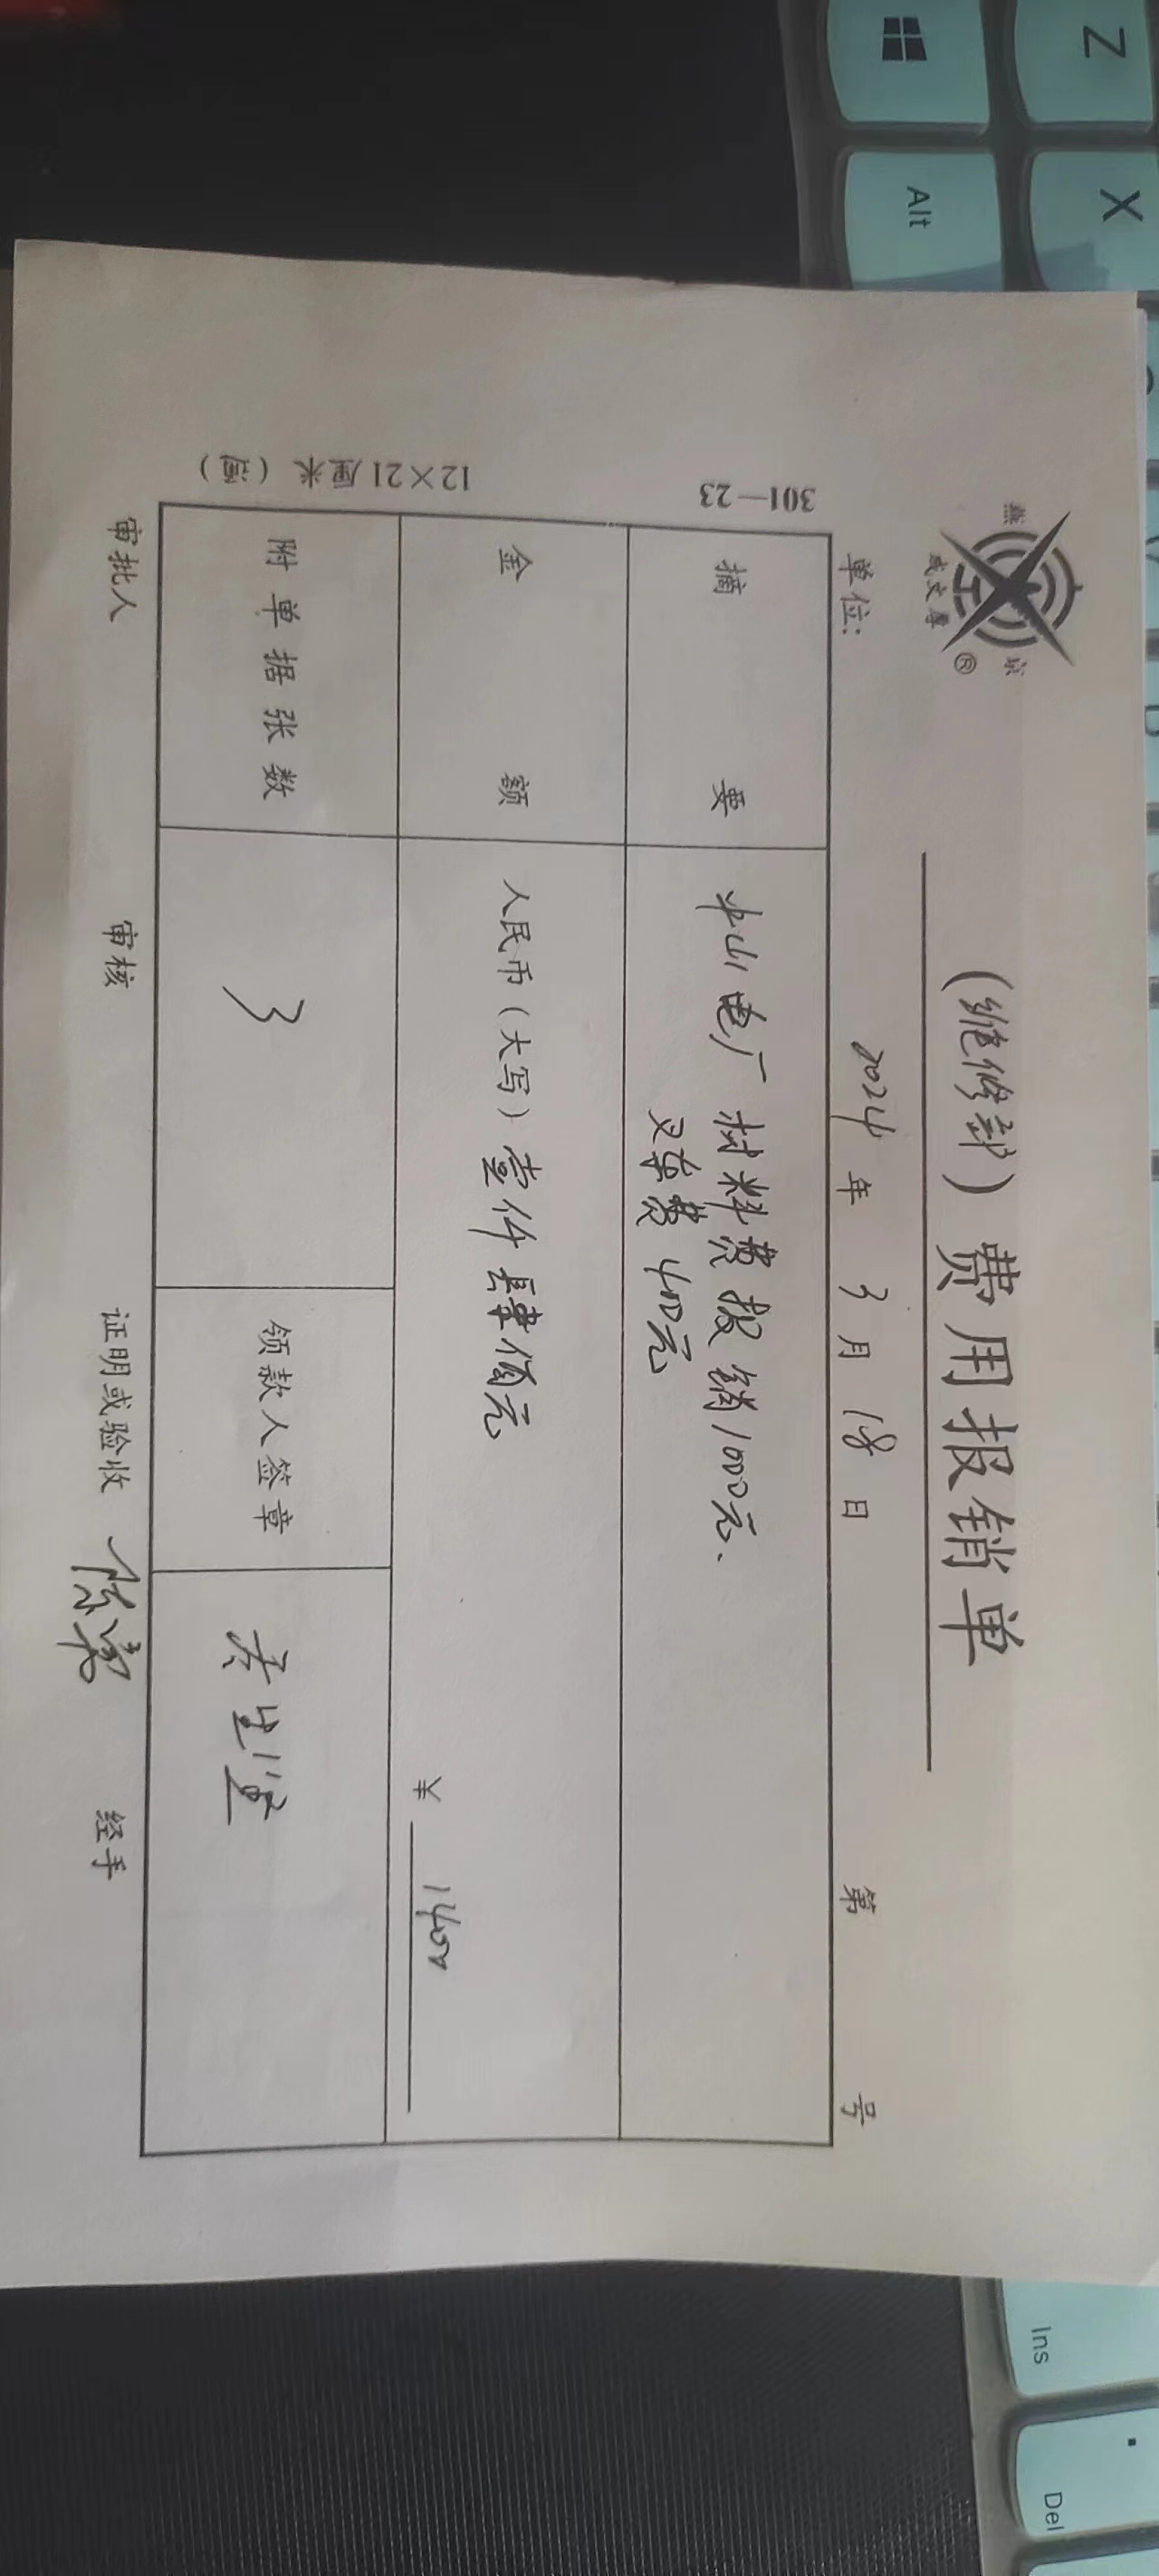 燕京
®
成文厚
(维修部) 费用报销单
单位: 2024 年 3 月 18 日 第 号
摘要 中山电厂 材料费报销1000元、
叉车费 400元
金额 人民币(大写) 壹仟肆佰元
¥ 1400
附单据张数 3 领款人签章
审批人 审核 证明或验收 陈 经手
301—23
12×21厘米
Z
X
Alt
Ins
Del
.